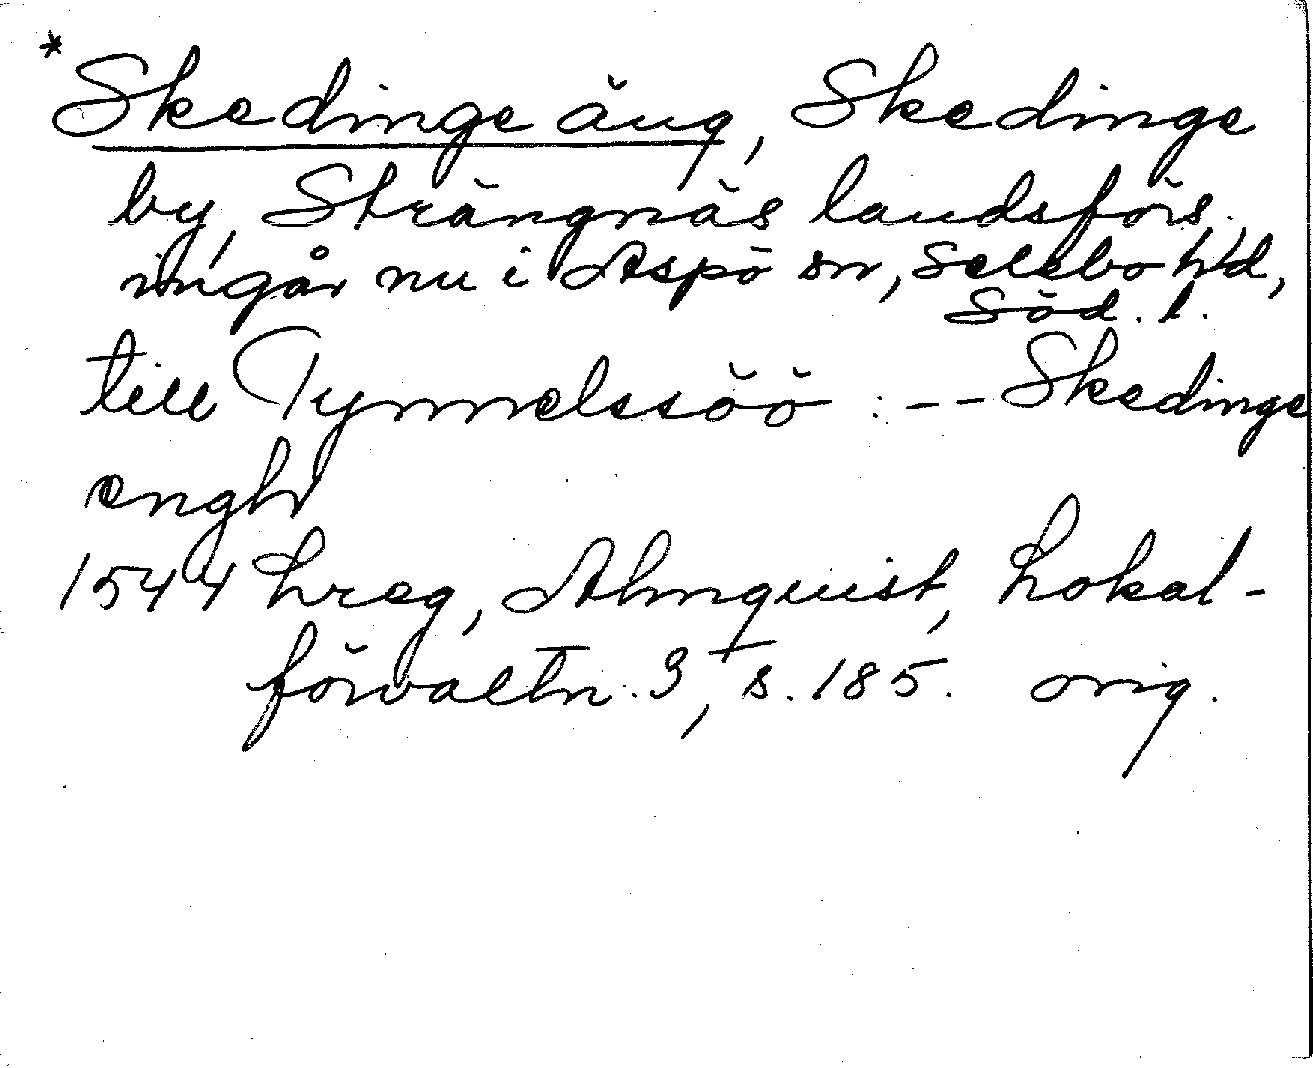 *Skedinge äng, Skedinge
by, Strängnäs landsförs.,
ingår nu i Aspö sn, Selebo hd,
Söd. l.
till Tynnelssöö : -- Skedinge
engh
1544 hreg, Almquist, Lokal-
förvaltn. 3, s. 185. orig.